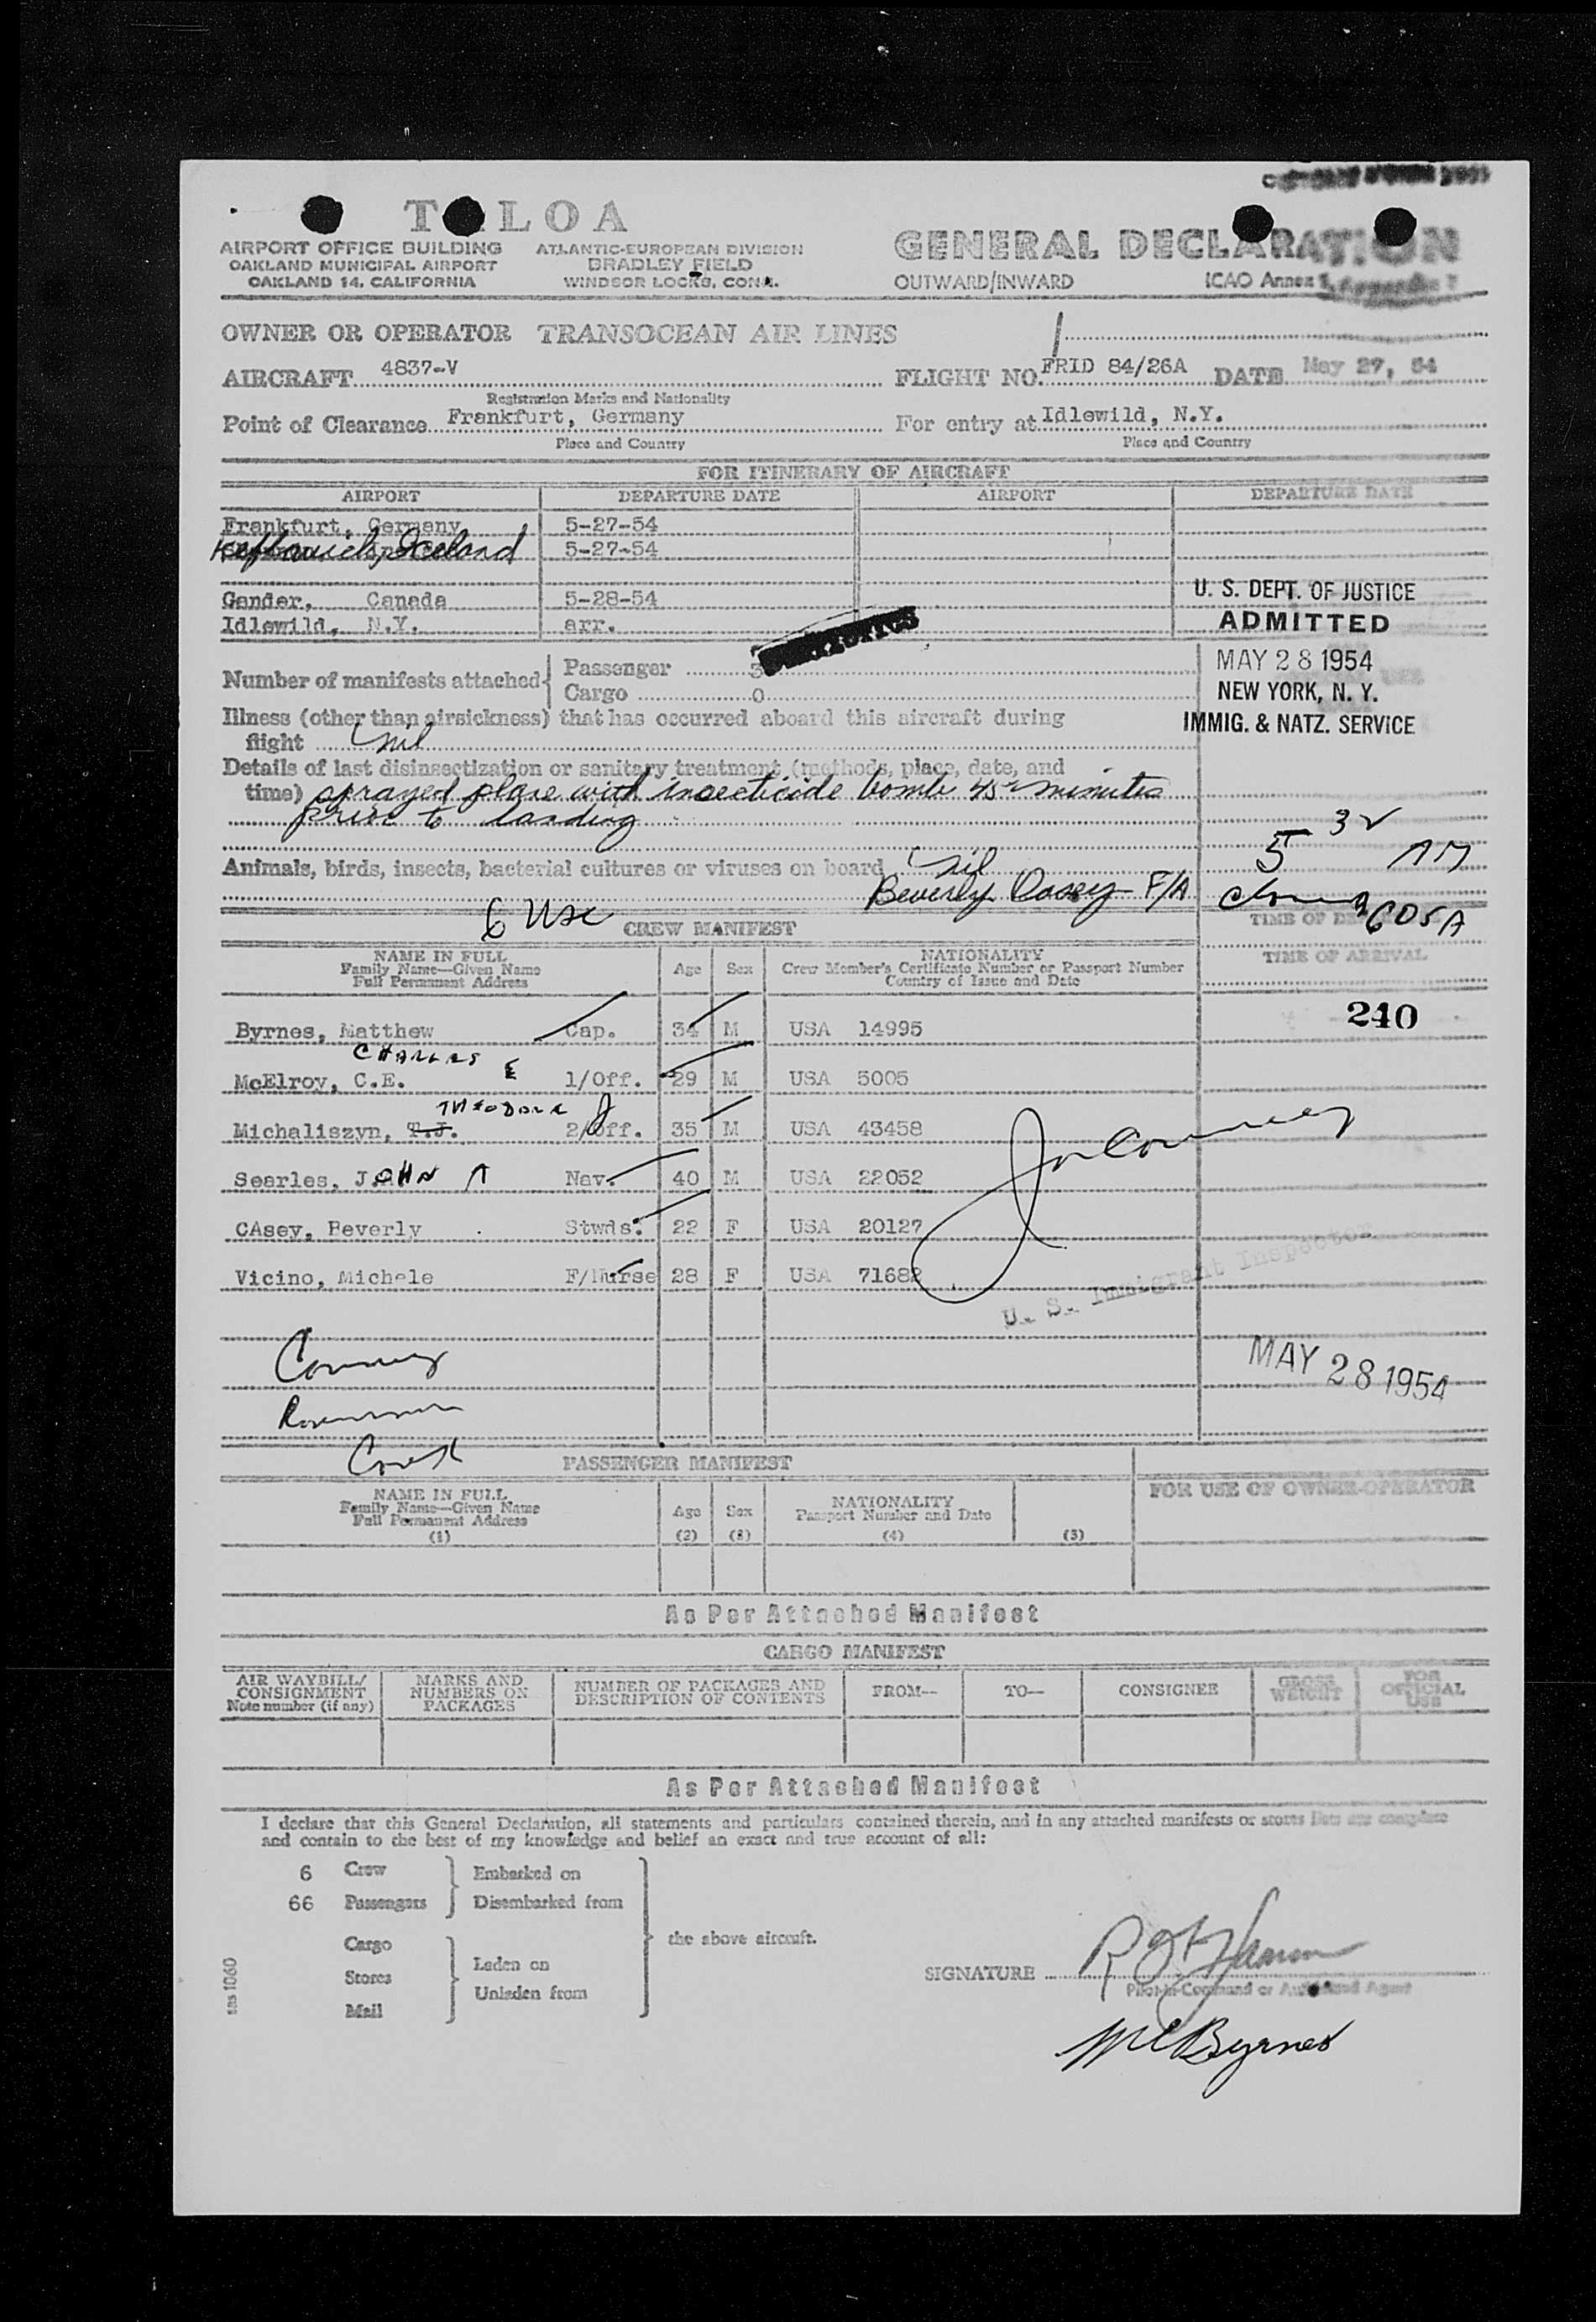 T LOA
AIRPORT OFFICE BUILDING
OAKLAND MUNICIPAL AIRPORT
OAKLAND 14, CALIFORNIA
ATLANTIC-EUROPEAN DIVISION
BRADLEY FIELD
WINDSOR LOCKS, CONN.
GENERAL DECLARATION
OUTWARD/INWARD
ICAO Annex
OWNER OR OPERATOR TRANSOCEAN AIR LINES
AIRCRAFT 4837-V
Registration Marks and Nationality
FLIGHT NO. FRID 84/26A DATE May 27, 54
Point of Clearance Frankfurt, Germany
Place and Country
For entry at Idlewild, N.Y.
Place and Country
FOR ITINERARY OF AIRCRAFT
AIRPORT DEPARTURE DATE AIRPORT DEPARTURE DATE
Frankfurt, Germany 5-27-54
Keflavick, Iceland 5-27-54
Gander, Canada 5-28-54
Idlewild, N.Y. arr.
U. S. DEPT. OF JUSTICE
ADMITTED
MAY 28 1954
NEW YORK, N. Y.
IMMIG. & NATZ. SERVICE
Number of manifests attached
Passenger 3
Cargo 0
Illness (other than airsickness) that has occurred aboard this aircraft during
flight nil
Details of last disinsectization or sanitary treatment (methods, place, date, and
time) sprayed plane with insecticide bomb 45 minutes
prior to landing
Animals, birds, insects, bacterial cultures or viruses on board nil
Beverly Casey F/A
5
605A
6 USC
CREW MANIFEST
TIME OF
TIME OF ARRIVAL
240
NAME IN FULL
Family Name—Given Name
Full Permanent Address
Age Sex
NATIONALITY
Crew Member's Certificate Number or Passport Number
Country of Issue and Date
Byrnes, Matthew Cap. 34 M USA 14995
CHARLES E
McElroy, C.E. 1/Off. 29 M USA 5005
THEODORE J
Michaliszyn, T.J. 2/Off. 35 M USA 43458
Searles, JOHN A Nav. 40 M USA 22052
CAsey, Beverly Stwds. 22 F USA 20127
Vicino, Michele F/Nurse 28 F USA 71682
U. S. Immigrant Inspector
MAY 28 1954
PASSENGER MANIFEST
NAME IN FULL
Family Name—Given Name
Full Permanent Address
(1)
Age
(2)
Sex
(3)
NATIONALITY
Passport Number and Date
(4)
(5)
FOR USE OF OWNER-OPERATOR
As Per Attached Manifest
CARGO MANIFEST
AIR WAYBILL/
CONSIGNMENT
Note number (if any)
MARKS AND
NUMBERS ON
PACKAGES
NUMBER OF PACKAGES AND
DESCRIPTION OF CONTENTS
FROM—
TO—
CONSIGNEE
GROSS
WEIGHT
FOR
OFFICIAL
USE
As Per Attached Manifest
I declare that this General Declaration, all statements and particulars contained therein, and in any attached manifests or stores lists are complete
and contain to the best of my knowledge and belief an exact and true account of all:
6 Crew
66 Passengers
Embarked on
Disembarked from
Cargo
Stores
Mail
Laden on
Unladen from
the above aircraft.
SIGNATURE
Pilot-in-Command or Authorized Agent
McByrnes
tas 1060